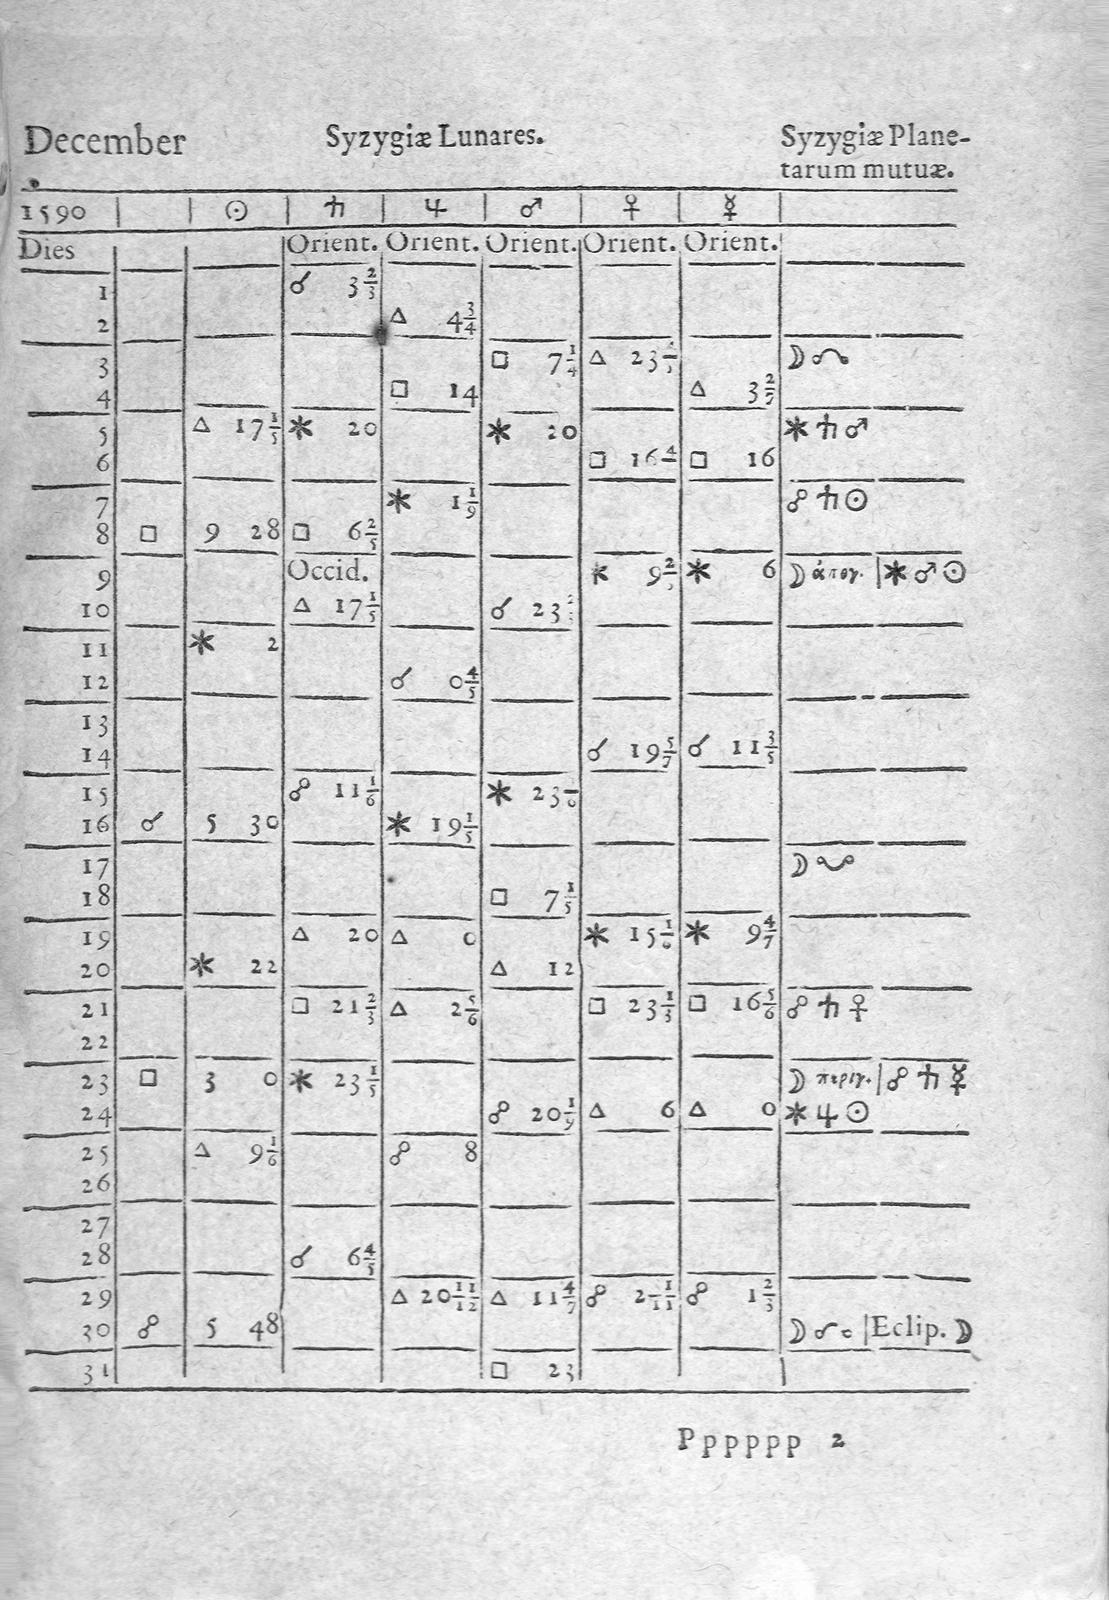 December Syzygiæ Lunares. Syzygiæ Plane-
tarum mutuæ.
1590 ☉ ♄ ♃ ♂ ♀ ☿
Dies Orient. Orient. Orient. Orient. Orient.
1 ☌ 3 2/3
2 △ 4 3/4
3 □ 7 1/4 △ 23 ☽ ☊
4 □ 14 △ 3 2/7
5 △ 17 1/5 ⚹ 20 ⚹ 20 ⚹ ♄ ♂
6 □ 16 □ 16
7 ⚹ 1 1/9 ☍ ♄ ☉
8 □ 9 28 □ 6 2/5
9 Occid. ⚹ 9 ⚹ 6 ☽ ἀπογ. | ⚹ ♂ ☉
10 △ 17 1/5 ☌ 23
11 ⚹ 2
12 ☌ 0 4/5
13
14 ☌ 19 5/7 ☌ 11 3/5
15 ☍ 11 1/6 ⚹ 23
16 ☌ 5 30 ⚹ 19 1/5
17 ☽ ☋
18 □ 7 1/5
19 △ 20 △ 0 ⚹ 15 1/6 ⚹ 9 4/7
20 ⚹ 22 △ 12
21 □ 21 2/3 △ 2 5/6 □ 23 1/3 □ 16 5/6 ☍ ♄ ♀
22
23 □ 3 0 ⚹ 23 1/5 ☽ περιγ. | ☍ ♄ ☿
24 ☍ 20 1/9 △ 6 △ 0 ⚹ ♃ ☉
25 △ 9 1/6 ☍ 8
26
27
28 ☌ 6 4/5
29 △ 20 11/12 △ 11 4/7 ☍ 2 1/11 ☍ 1 2/3
30 ☍ 5 48 ☽ | Eclip. ☽
31 □ 23
Pppppp 2